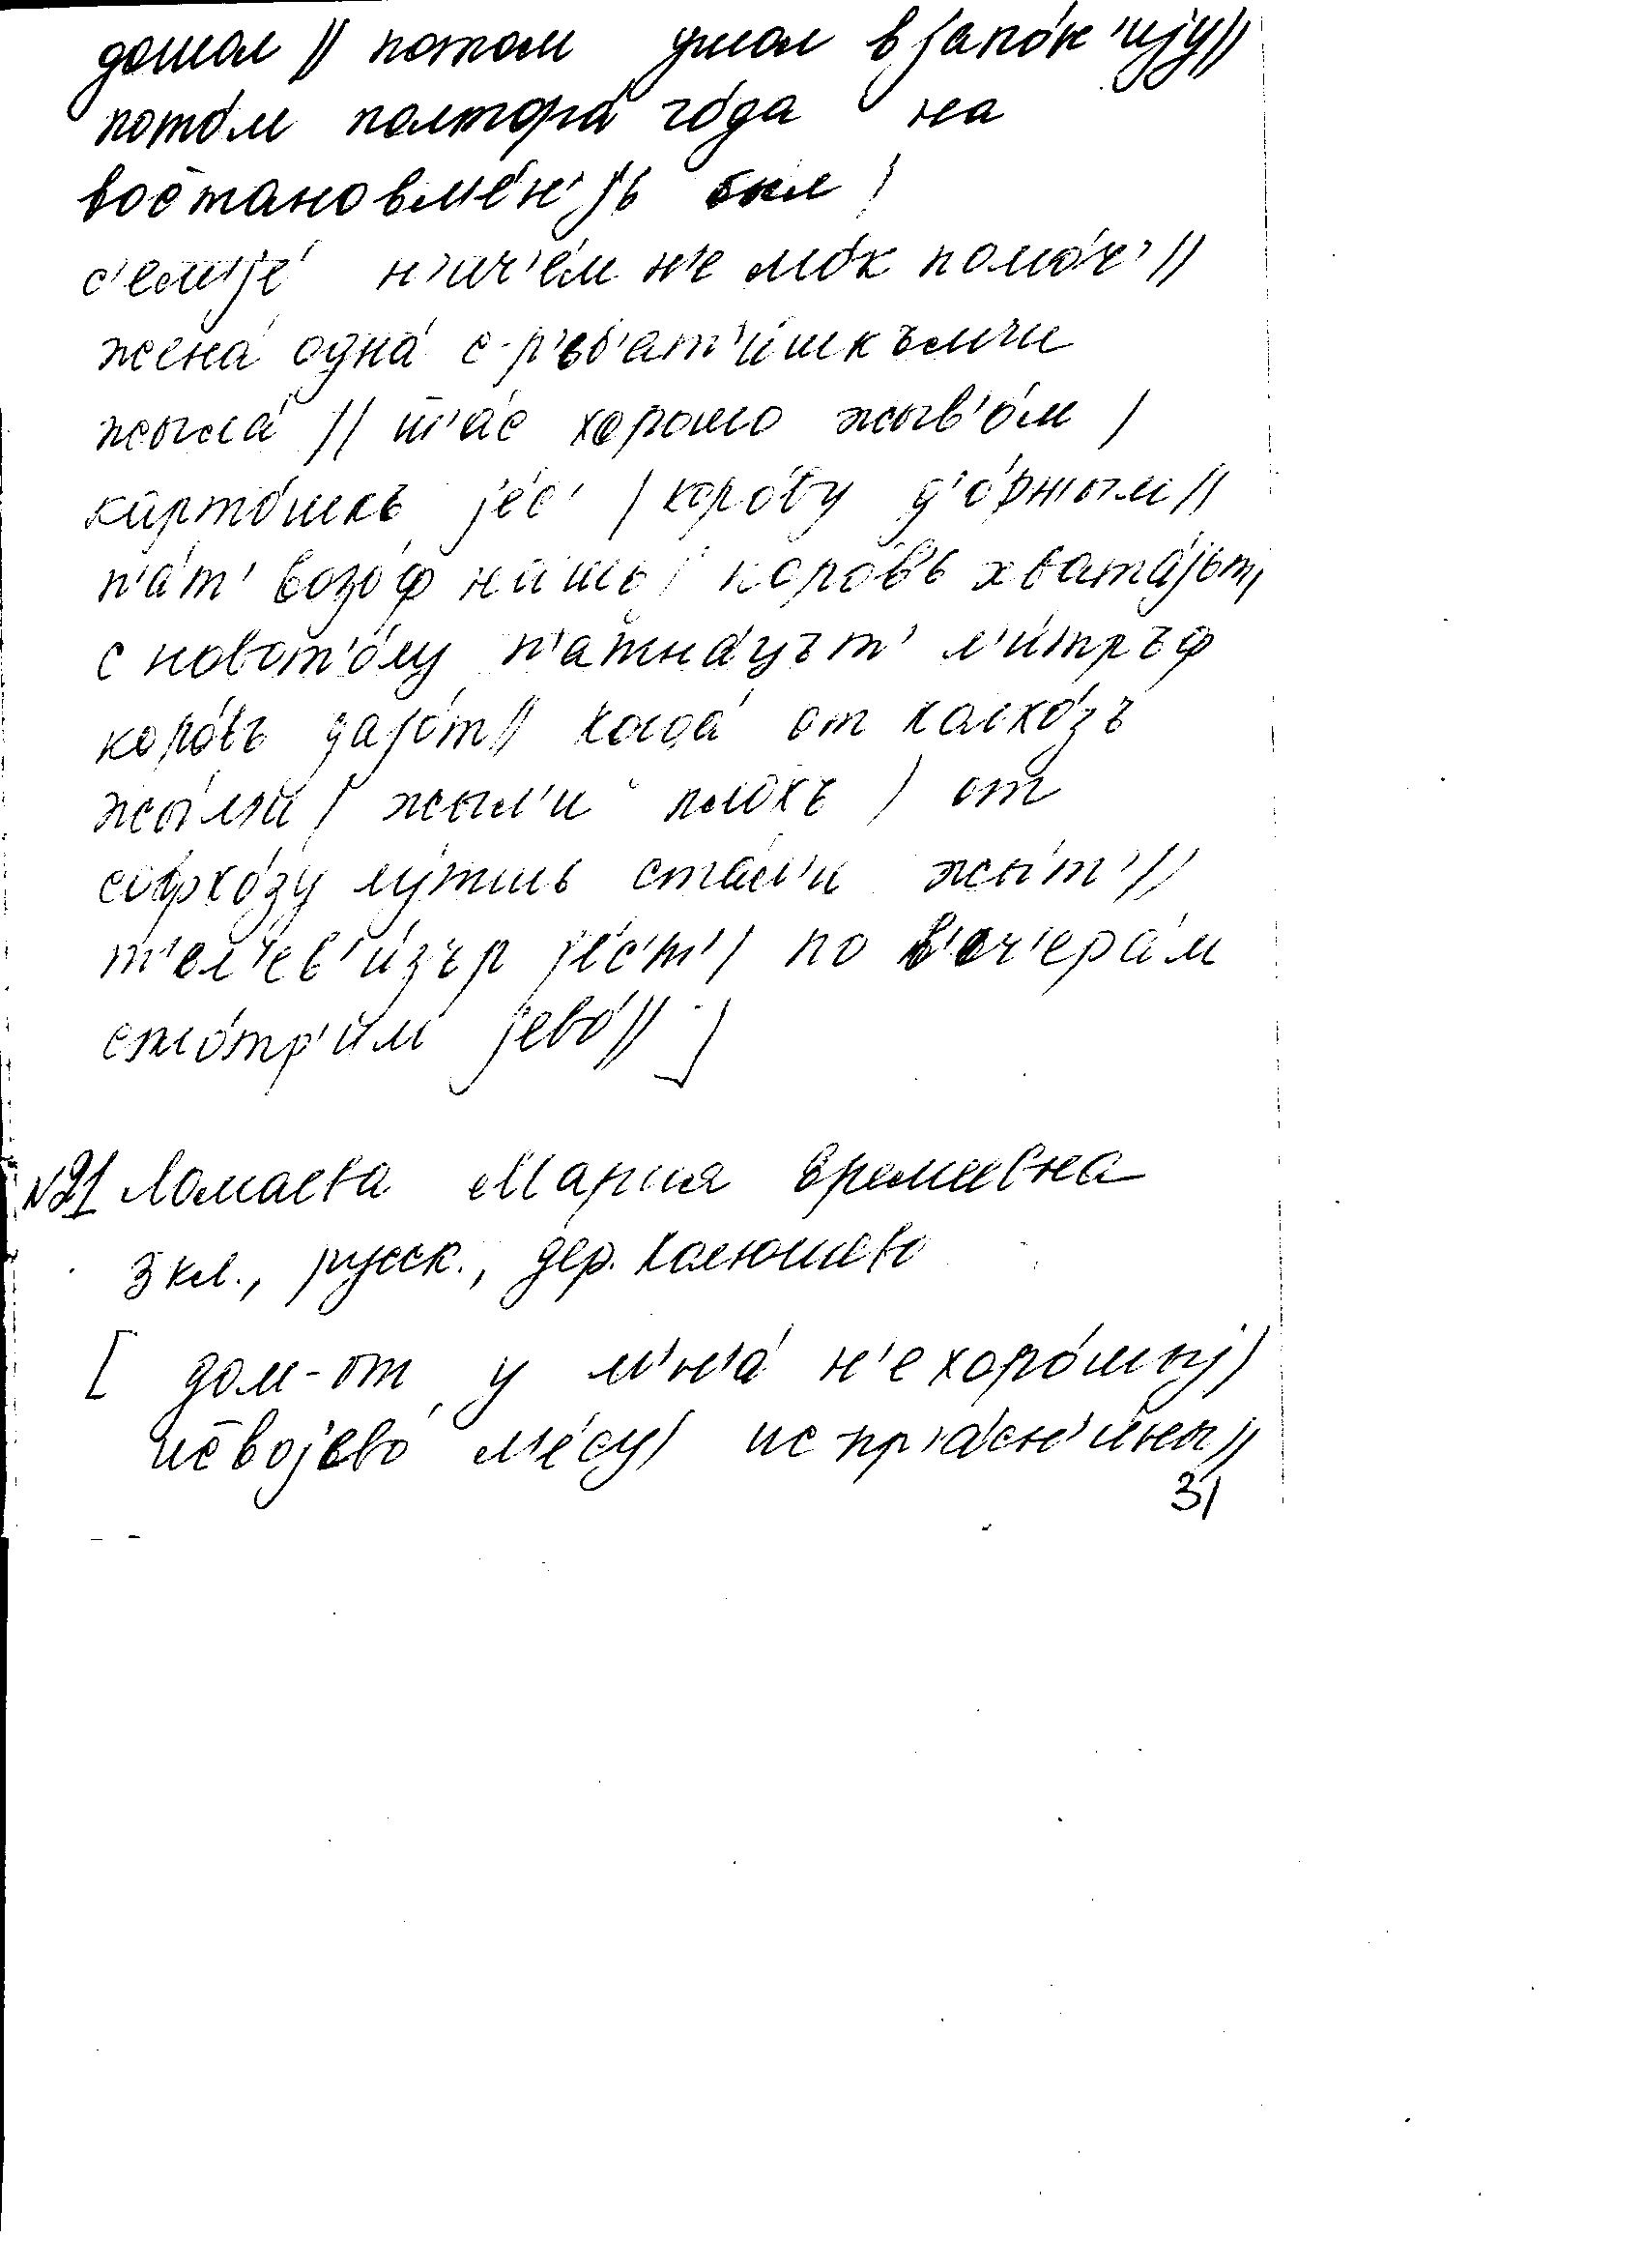 дошол // потом ушол в јапо́н'ијy //
пото́м полтора́ го́да на
вос̄тановл'е́н'јь был /
с'ем'је́ н'ич'е́м н'е мо́к помо́ч' //
жена́ одна́ с-р'ьб'ат'и́шкъм'и
жыла́ // т'ас хорошо жыв'о́м /
карто́шкъ је́с' / коро́ву д'о́ржым //
п'а́т' возо́ф на́шь / коро́в'ь хвата́јьт /
с новот'о́лу п'атна́цът' л'и́тръф
коро́въ дајо́т // когда́ от колхо́зъ
жы́л'и / жыл'и пло́хъ / от
софхо́зу лу́тшь ста́л'и жы́т' //
т'ел'ев'и́зър је́с'т' / по в'еч'ера́м
смо́тр'им јево́ // ]
№21 Ломаева Мария Еремеевна
3 кл., русск., дер. Колюшево
[ дом-от у м'н'а́ н'ехоро́шыј /
ис̄војево́ л'е́су / ис пр'а́сн'ины //
31